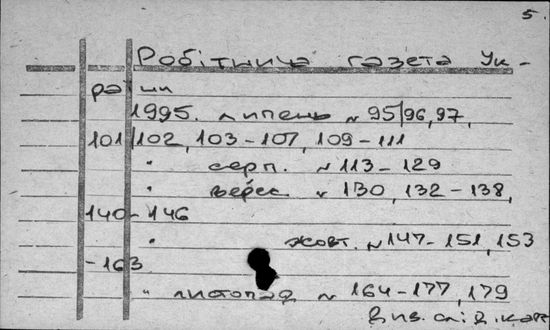 5.
Робітнича газета Ук-
раїни
1995. липень № 95/96, 97,
101/102, 103-107, 109-111
" серп. № 113-129
" верес. № 130, 132-138,
140-146
" жовт. № 147-151, 153
-163
" листопад № 164-177, 179
Див. слід. карт